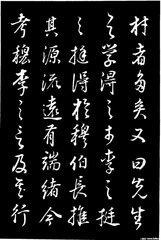 材者多矣又曰先生
之學得之於李之挺
之挺得於穆伯長推
其源流遠有端緒今
考穆李之言及其行